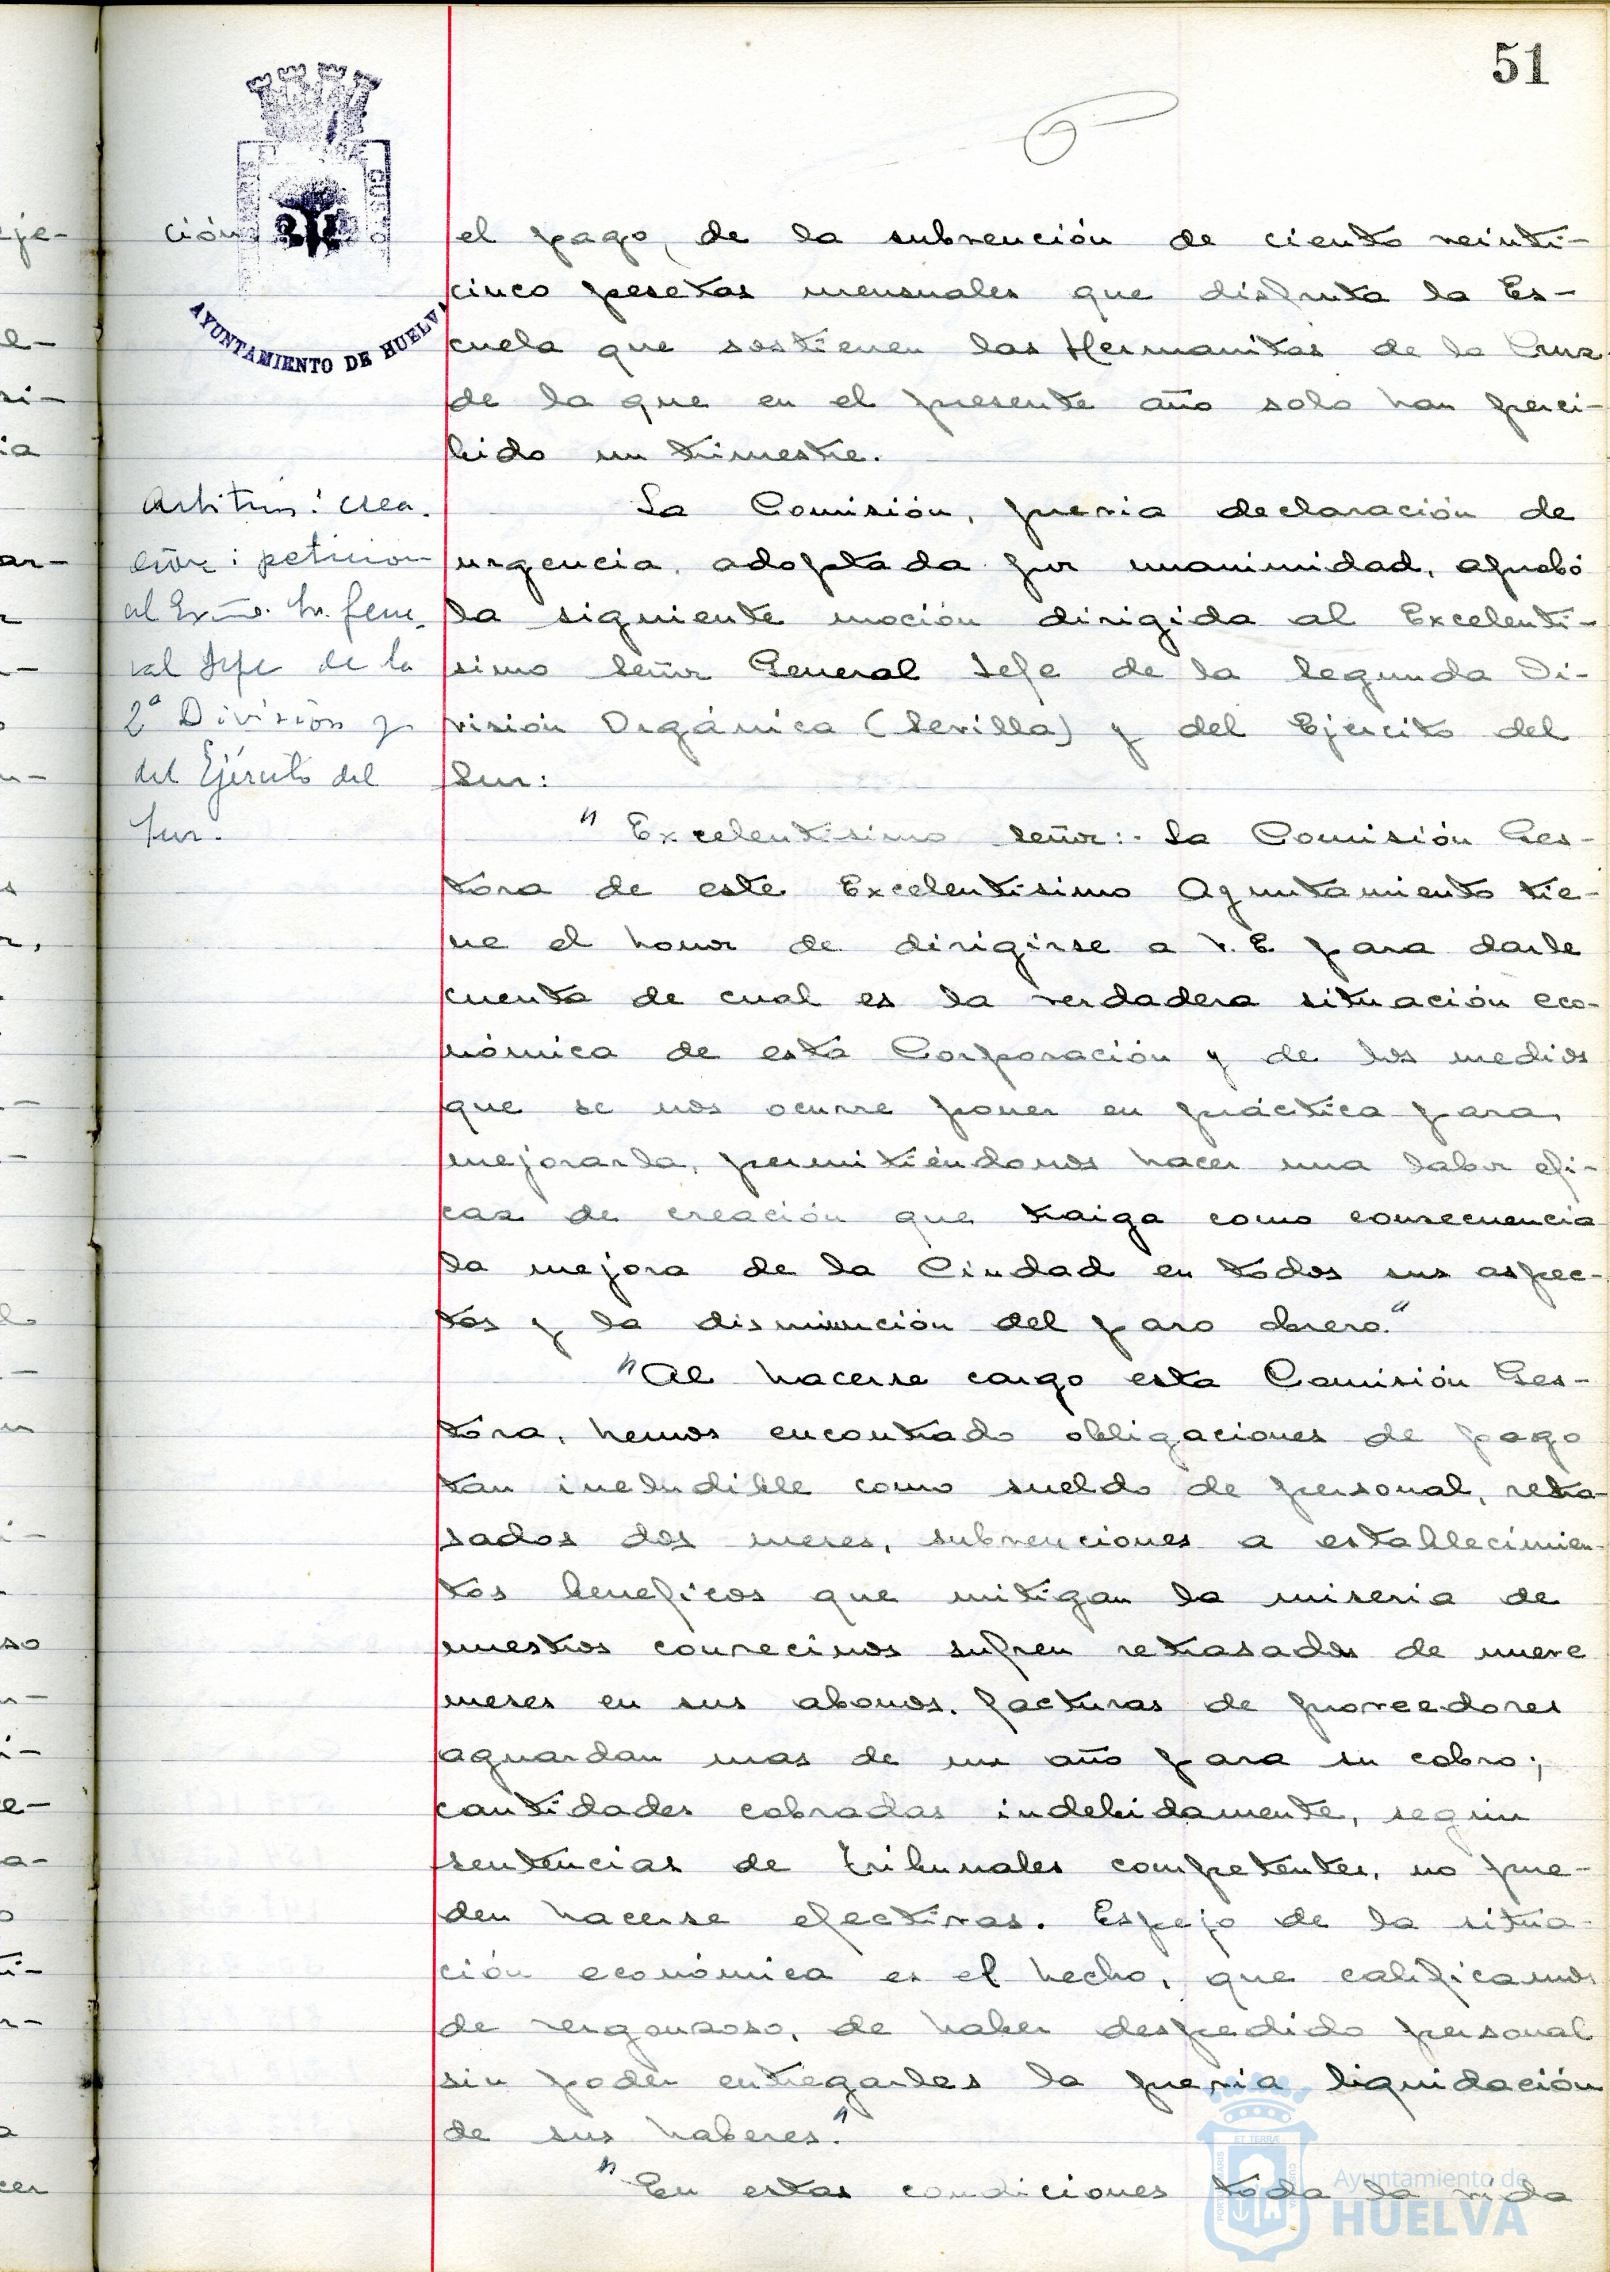 51
ción
AYUNTAMIENTO DE HUELVA
el pago, de la subvención de ciento veinti-
cinco pesetas mensuales que disfruta la Es-
cuela que sostienen las Hermanitas de la Cruz
de la que en el presente año solo han perci-
bido un trimestre.
Arbitrios: crea-
ción: petición
al Excmo. Sr. Gene-
ral Jefe de la
2ª División y
del Ejército del
Sur.
La Comisión, previa declaración de
urgencia, adoptada por unanimidad, aprobó
la siguiente moción dirigida al Excelentí-
simo Señor General Jefe de la Segunda Di-
visión Orgánica (Sevilla) y del Ejército del
Sur:
"Excelentísimo Señor:- La Comisión Ges-
tora de este Excelentísimo Ayuntamiento tie-
ne el honor de dirigirse a V.E para darle
cuenta de cual es la verdadera situación eco-
nómica de esta Corporación y de los medios
que se nos ocurre poner en práctica para
mejorarla, permitiéndonos hacer una labor efi-
caz de creación que traiga como consecuencia
la mejora de la Ciudad en todos sus aspec-
tos y la disminución del paro obrero."
"Al hacerse cargo esta Comisión Ges-
tora, hemos encontrado obligaciones de pago
tan ineludible como sueldo de personal, retra-
sados dos meses, subvenciones a establecimien-
tos beneficos que mitigan la miseria de
nuestros convecinos sufren retrasados de nueve
meses en sus abonos. facturas de proveedores
aguardan mas de un año para su cobro;
cantidades cobradas indebidamente, según
sentencias de tribunales competentes, no pue-
den hacerse efectivas. Espejo de la situa-
ción económica es el hecho, que calificamos
de vergonzoso, de haber despedido personal
sin poder entregarles la previa liquidación
de sus haberes."
"En estas condiciones toda la vida
Ayuntamiento de
HUELVA